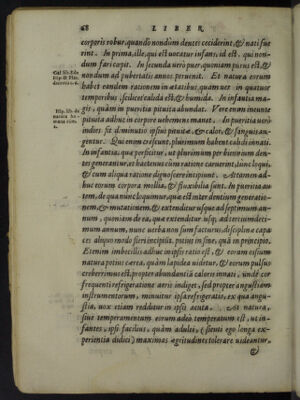 68 LIBER
corporis robur, quando nondum dentes ceciderint, & nati fue
rint. In prima, ille, qui est uocatur infans, id est, qui non-
dum fari capit. In secunda uerò puer, quoniam purus est, &
nondum ad pubertatis annos peruenit. Et natura eorum
habet eandem rationem in ætatibus, quam uer in quatuor
temporibus, scilicet calida est, & humida. In infantia ma-
gis, quàm in pueritia pituita abundat. Vere enim incunte
pituita adhuc in corpore uehemens manet. In pueritia uerò
indies sit diminutio ipsius pituitæ, & calor, & sanguis au-
gentur. Qui enim crescunt, plurimum habent calidi innati.
In infantia, quæ perficitur, ut plurimùm per bimium, den-
tes generantur, et hactenus cùm ratione careant,
& cum aliqua ratione dignoscere incipiunt. Attamen ad-
huc eorum corpora mollia, & fluxibilia sunt. In pueritia au-
tem, de qua nunc loquimur, quæ est inter dentium generatio-
nem, & mutationem, & extenditur usque ad septimum an-
num, quoniam de ea, quæ extenditur usque ad tertiumdeci-
mum annum, nunc uerba non sum facturus, disciplinæ capa
ces aliquo modo fieri incipiunt, potius in fine, quàm in principio.
Etenim imbecillis adhuc in ipsis ratio est, & eorum essum
natura potius caret, quàm lapidea uidetur, & eorum pulsus
creberrimus est, propter abundantiā caloris innati, unde cor
frequenti refrigeratione aeris indiget, sed propter angustiam
instrumentorum, minuitur ipsa refrigeratio, ex qua angu-
stia, uox etiam redditur in ipsis acuta. At natura,
siue temperamentum eorum adeo temperatum est, ut in-
fantes, ipsi facilius, quàm adulti, (sicuti ego longa expe-
rientia didici) maximas ægritudines tolerare uideantur,
&